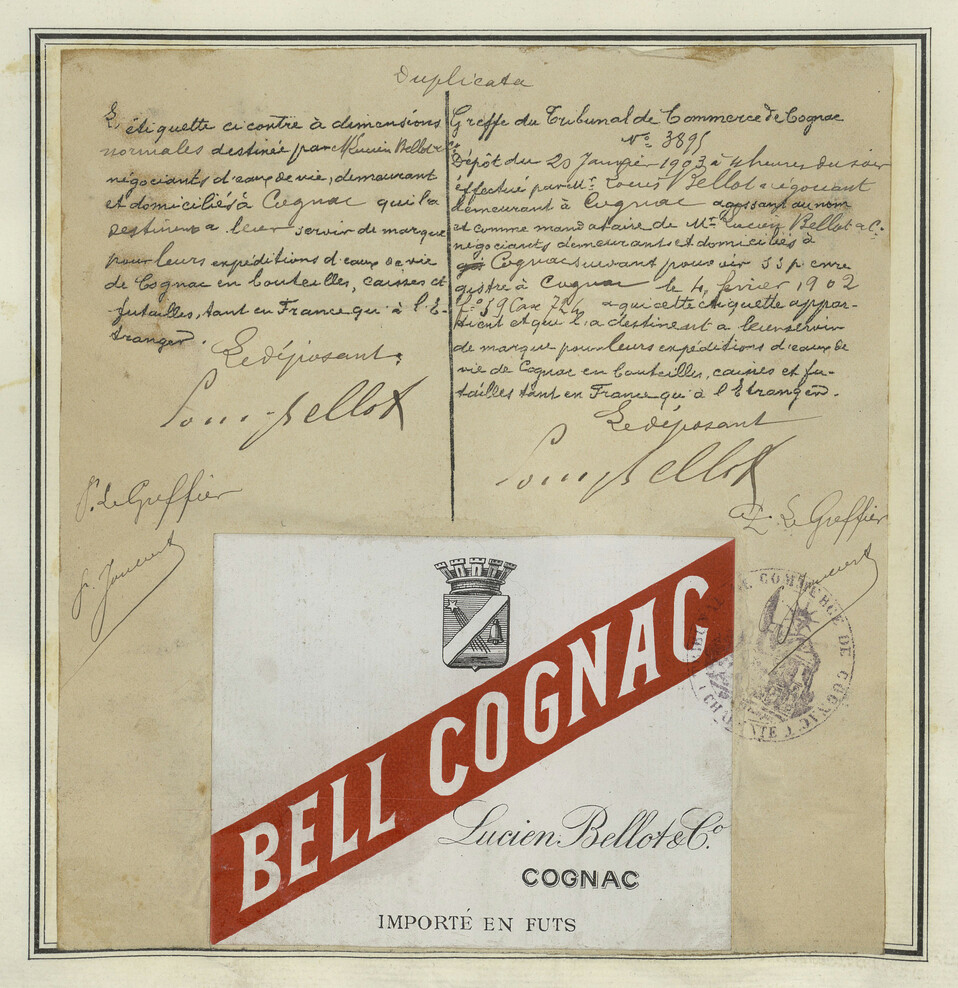 Duplicata
L'étiquette ci contre à dimensions
normales destinée par M. Lucien Bellot & Cie
négociants d'eaux de vie, demeurant
et domiciliés à Cognac qui la
destinent à leur servir de marque
pour leurs expéditions d'eaux de vie
de Cognac en bouteilles, caisses et
futailles, tant en France qu'à l'E-
tranger.
Le déposant.
Louis Bellot
Pr. Le Greffier
Greffe du Tribunal de Commerce de Cognac
No. 3895
Dépôt du 20 Janvier 1903 à 4 heures du soir
éffectué par Mr. Louis Bellot négociant
demeurant à Cognac agissant au nom
et comme mandataire de Mr. Lucien Bellot & Cie
négociants demeurants et domiciliés à
Cognac suivant pouvoir SSP enre
gistré à Cognac le 4 février 1902
fo. 59 Case 724 a qui cette étiquette appar-
tient et qui l'a destinent a leur servir
de marque pour leurs expéditions d'eaux de
vie de Cognac en bouteilles, caisses et fu-
tailles tant en France qu'à l'Etranger.
Le déposant
Louis Bellot
Le Greffier
BELL COGNAC
Lucien Bellot & Co.
COGNAC
IMPORTÉ EN FUTS
TRIBUNAL DE COMMERCE DE COGNAC
(CHARENTE)